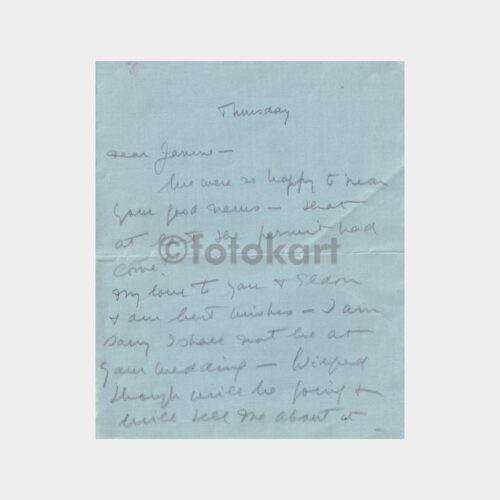 Thursday
Dear Janine –
We were so happy to hear
your good news – that
at last the permit had
©fotokart
come.
My love to you &
& all best wishes – I am
sorry I shall not be at
your wedding – Wilfred
though will be going &
will tell me about it